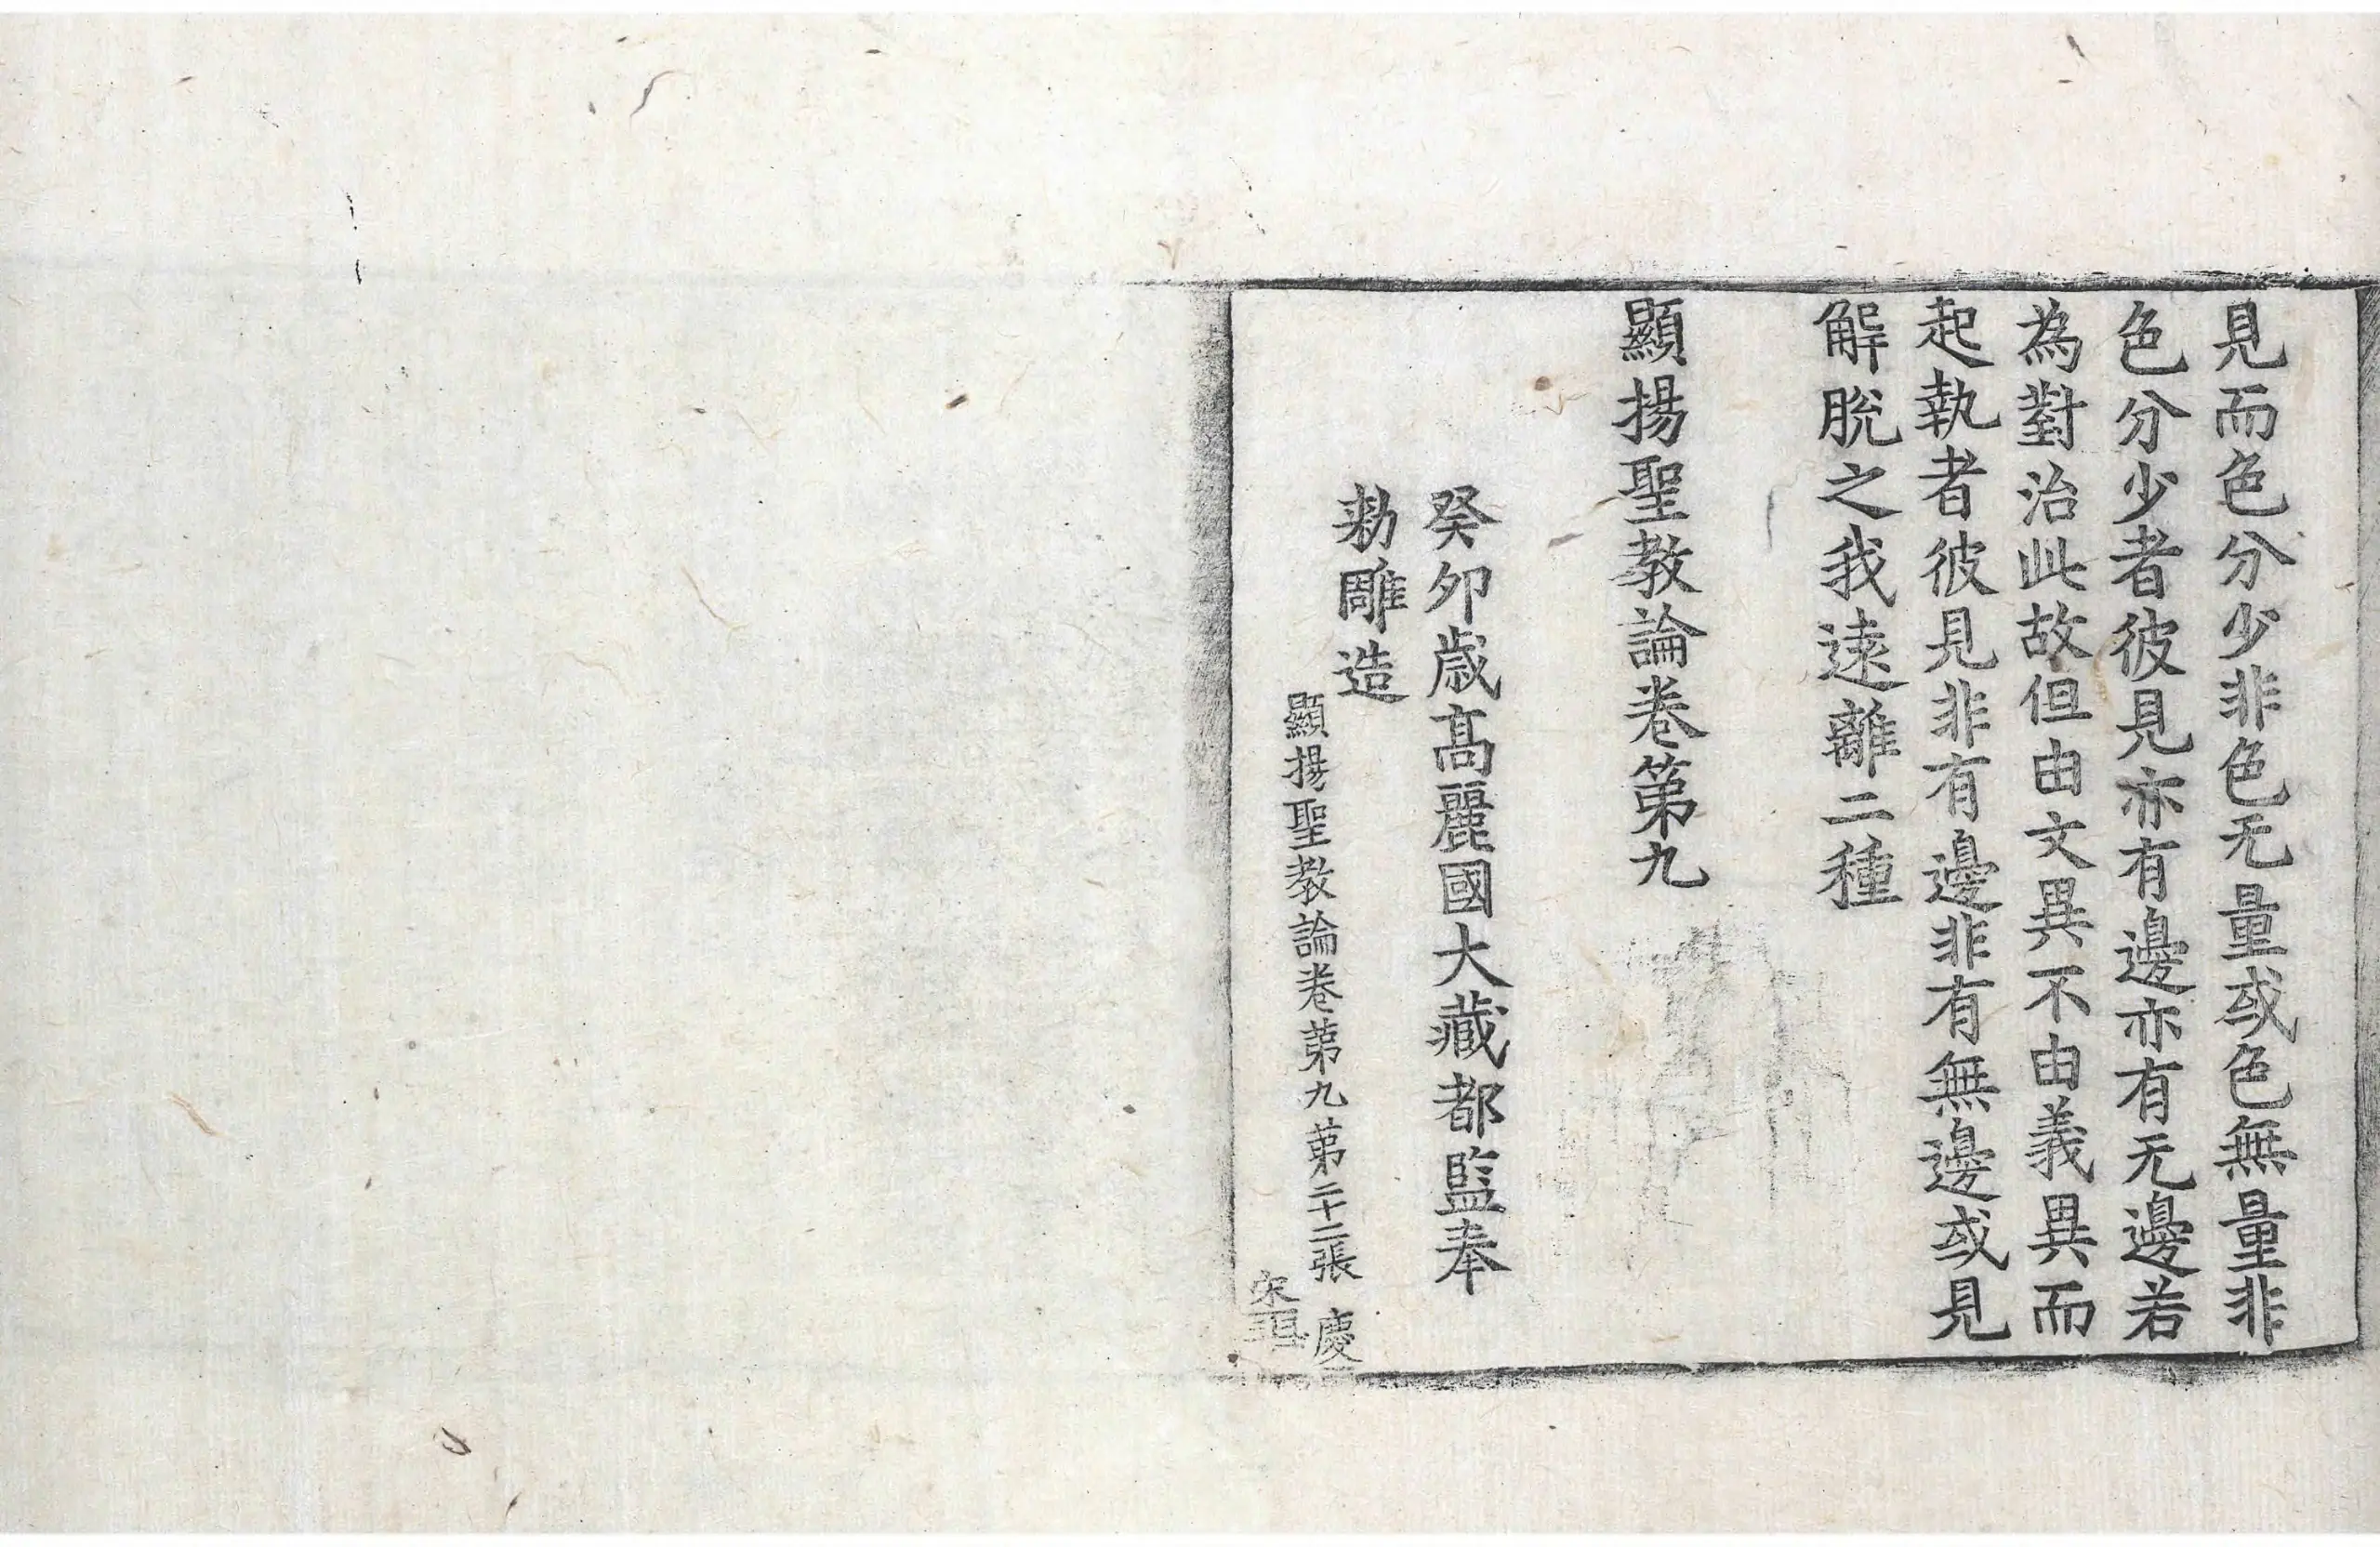 見而色分少非色无量或色無量非
色分少者彼見亦有邊亦有无邊若
為對治此故但由文異不由義異而
起執者彼見非有邊非有無邊或見
解脫之我遠離二種
顯揚聖教論卷第九
癸卯歲高麗國大藏都監奉
勑雕造
顯揚聖教論卷第九 第二十二張 慶
宋